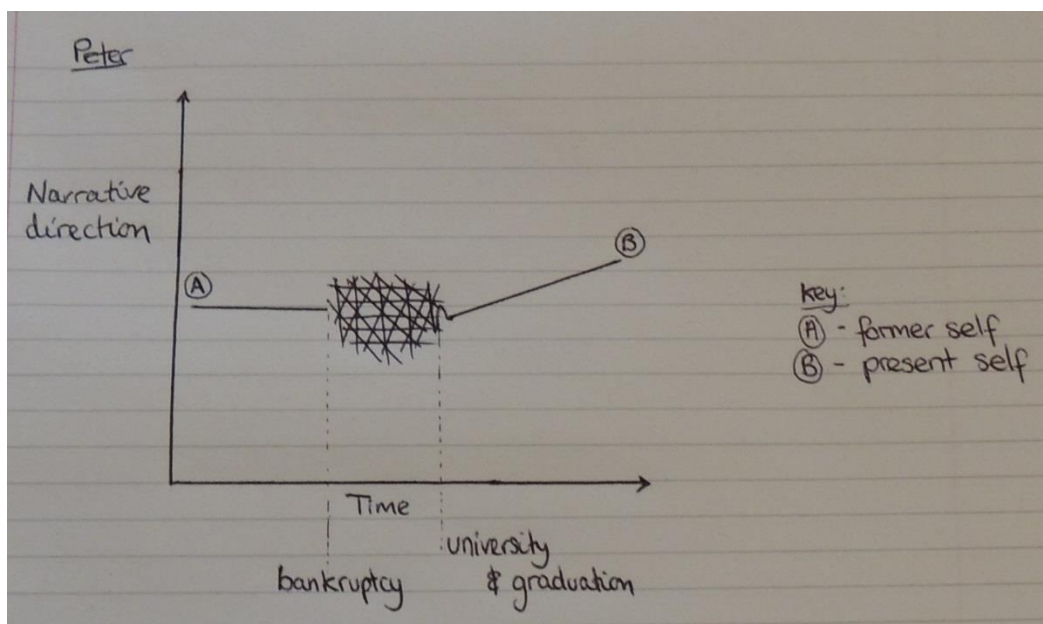 Peter
Narrative
direction
A
B
key:
A - former self
B - present self
Time
bankruptcy
university
& graduation